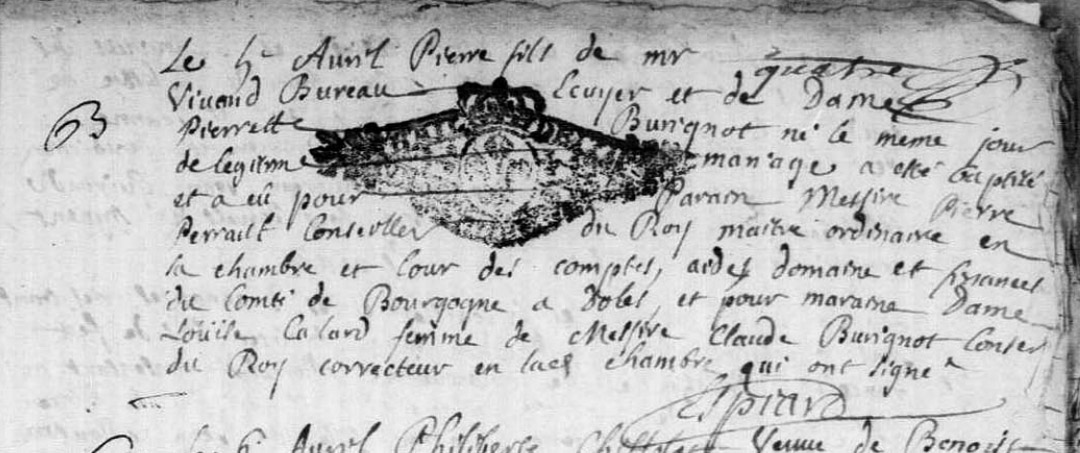 Le 4e Avril Pierre fils de mr quatre
Vivand Bureau Ecuyer et de Dame
63 Pierrette Burignot né le meme jour
de legitime mariage a esté baptisé
et a eu pour Parain Messire Pierre
Perrault Conseiller du Roy maitre ordinaire en
la chambre et Cour des comptes, aides domaine et finances
du Comté de Bourgogne a Dole, et pour maraine Dame
Louise Calard femme de Messire Claude Burignot Conser
du Roy correcteur en lade chambre qui ont signé
Espiard
Avril Philiberte Veuve de Benoist